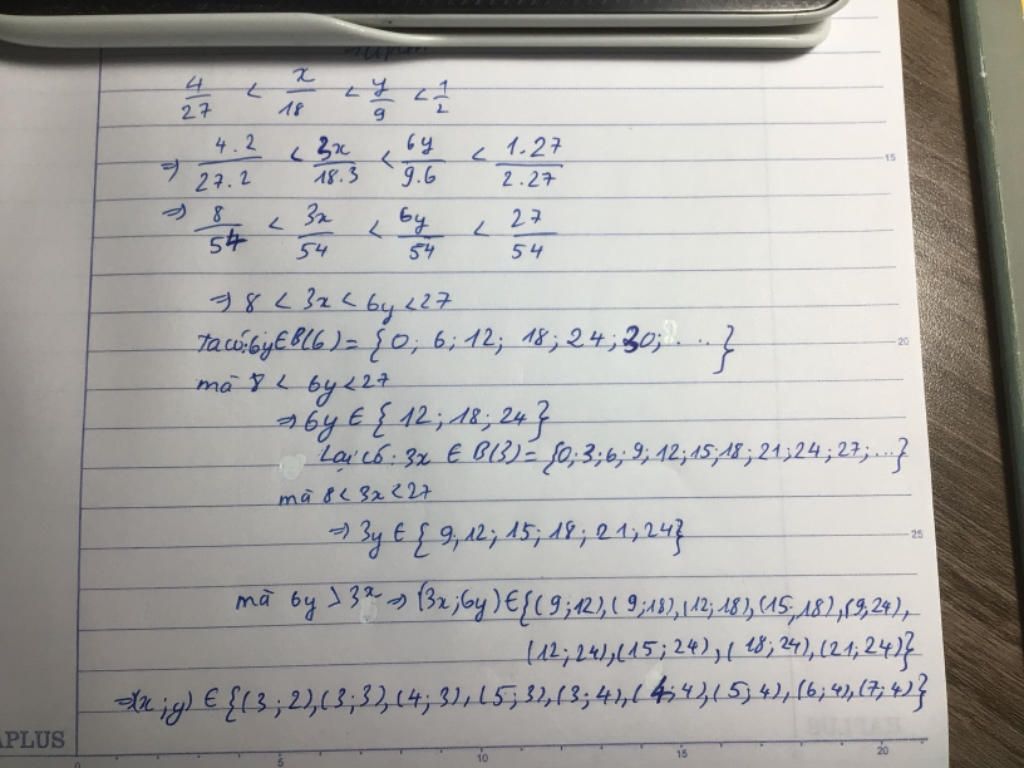 4/27 < x/18 < y/9 < 1/2
⇒ 4.2/27.2 < 3x/18.3 < 6y/9.6 < 1.27/2.27
⇒ 8/54 < 3x/54 < 6y/54 < 27/54
⇒ 8 < 3x < 6y < 27
Ta có: 6y ∈ B(6) = {0; 6; 12; 18; 24; 30; ...}
mà 8 < 6y < 27
⇒ 6y ∈ {12; 18; 24}
Lại có: 3x ∈ B(3) = {0; 3; 6; 9; 12; 15; 18; 21; 24; 27; ...}
mà 8 < 3x < 27
⇒ 3y ∈ {9; 12; 15; 18; 21; 24}
mà 6y > 3x ⇒ (3x; 6y) ∈ {(9; 12), (9; 18), (12; 18), (15; 18), (9; 24),
(12; 24), (15; 24), (18; 24), (21; 24)}
⇒ (x; y) ∈ {(3; 2), (3; 3), (4; 3), (5; 3), (3; 4), (4; 4), (5; 4), (6; 4), (7; 4)}
15
20
25
APLUS
0 5 10 15 20